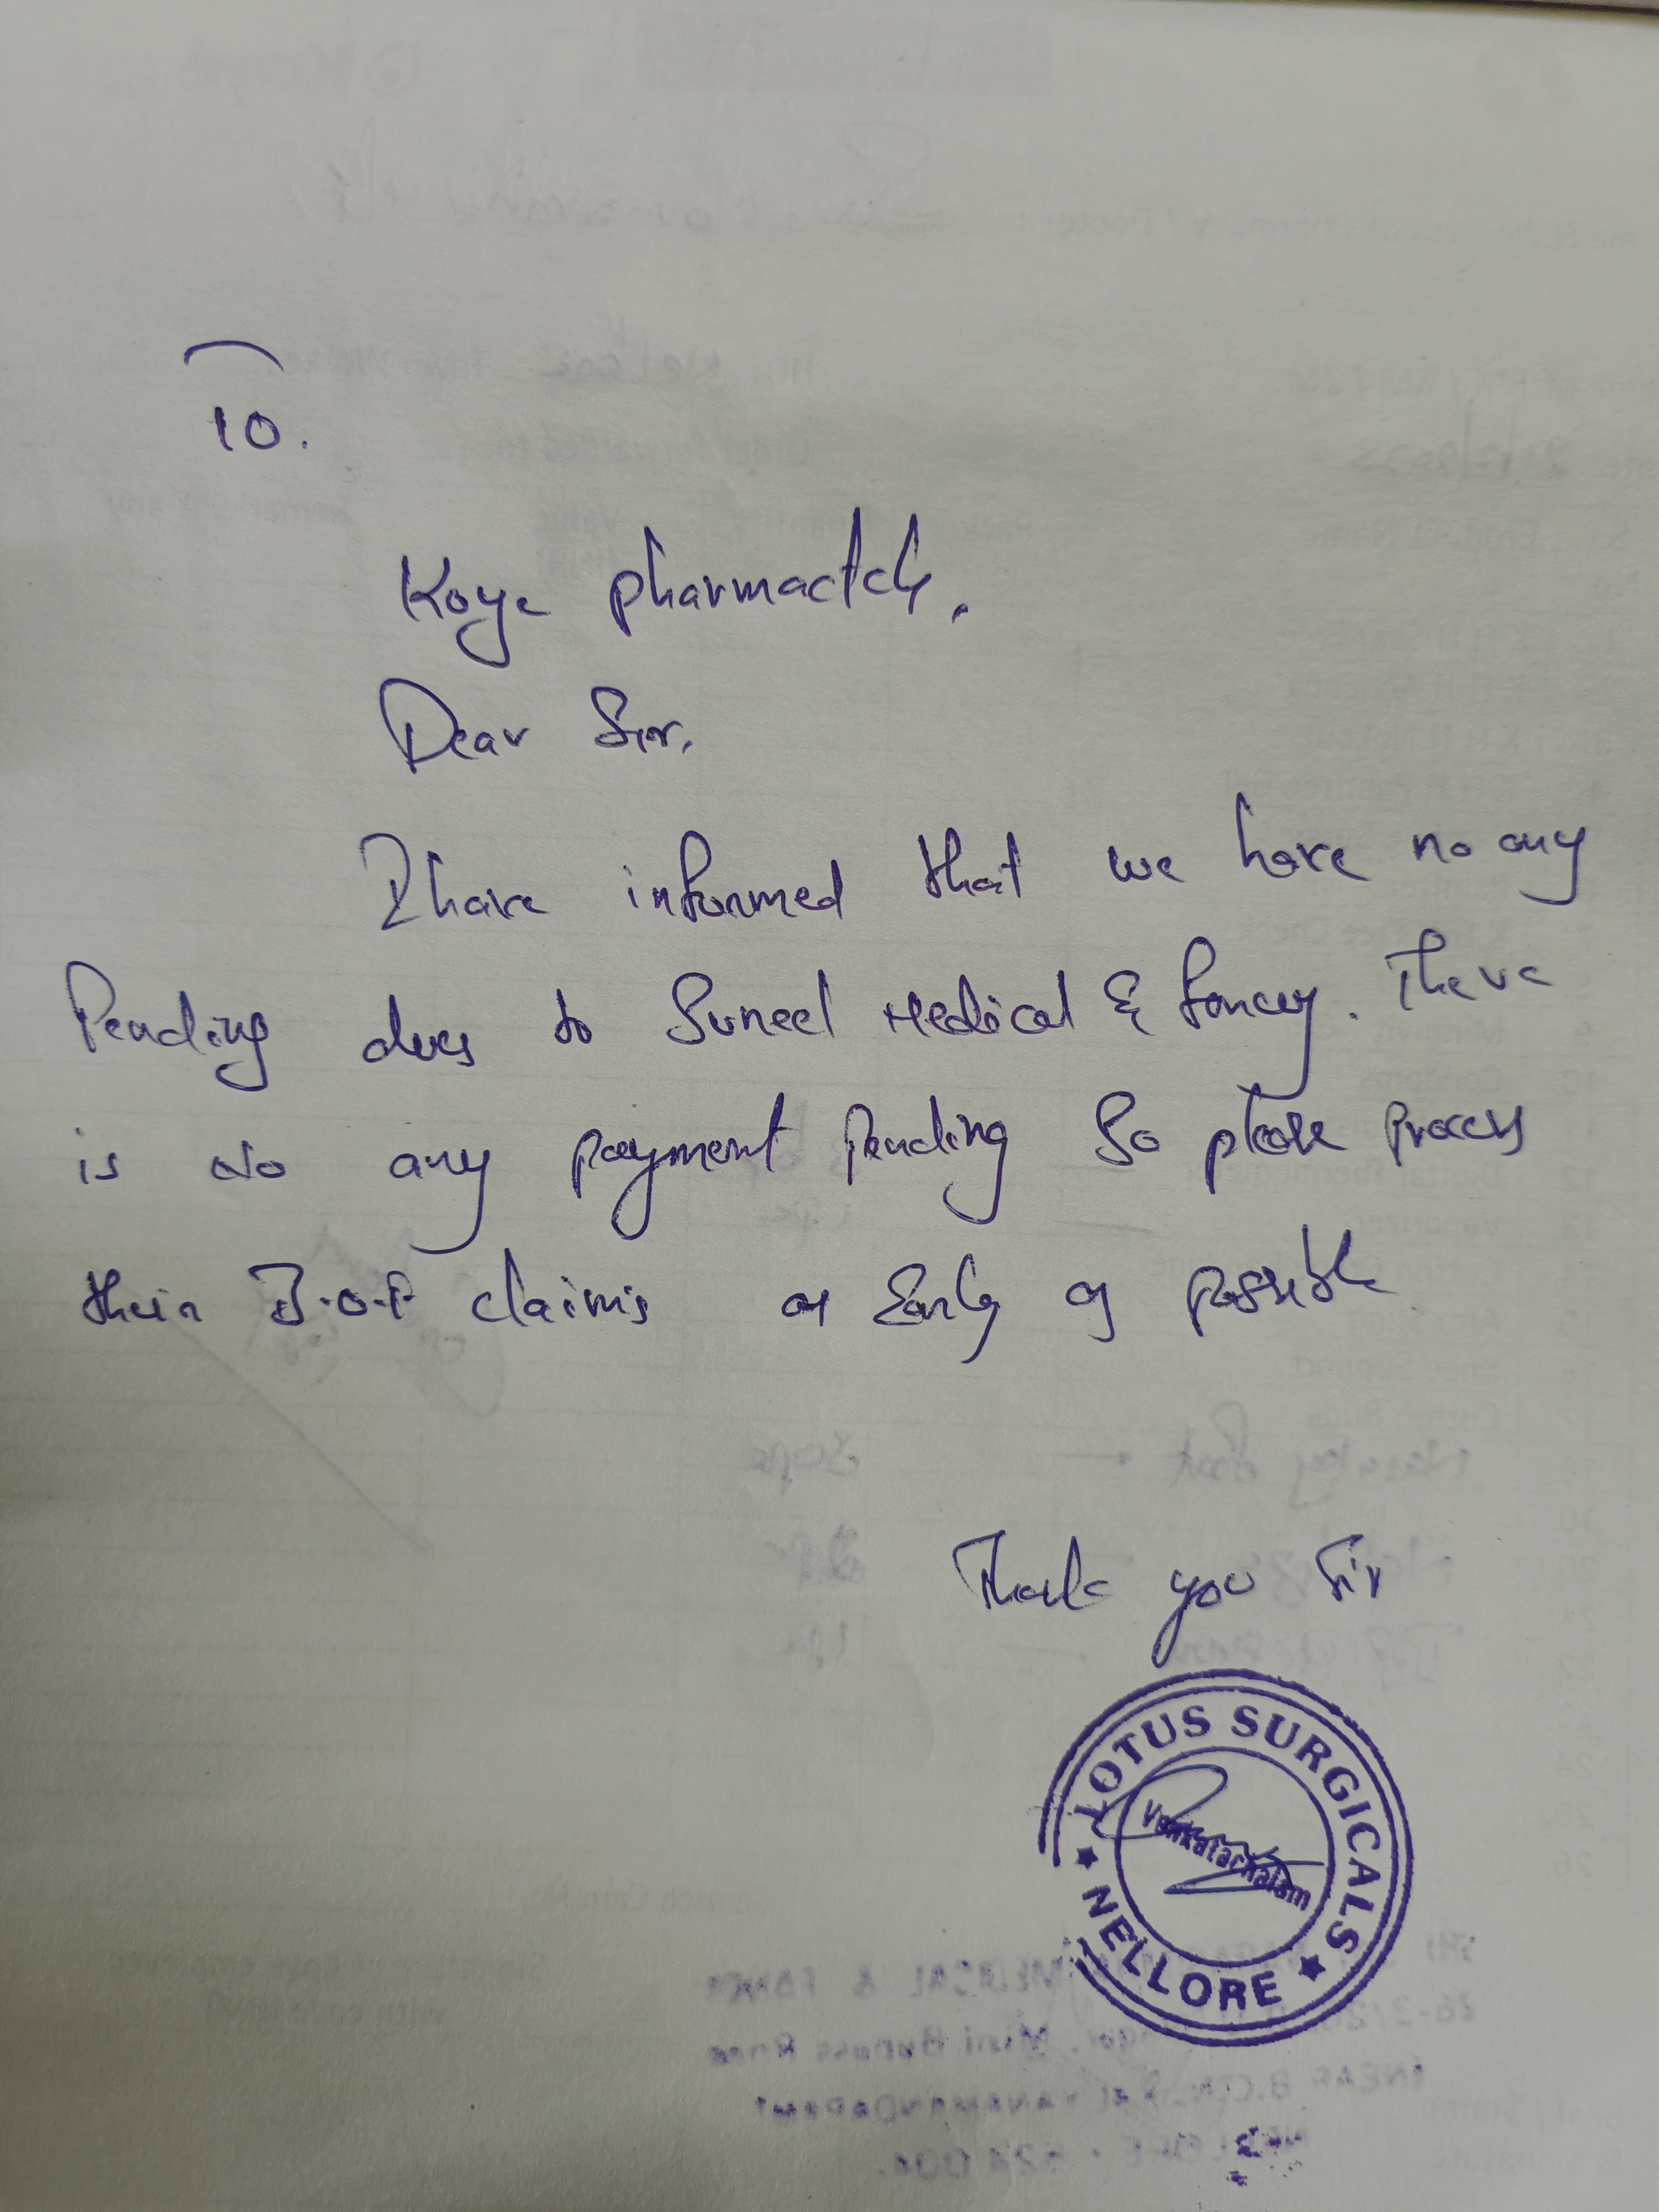 To.
Koye pharmactcls.
Dear Sir.
I have informed that we have no any
Pending dues to Suneel Medical & fancy. There
is No any payment pending So please process
their claims as Early as possible
Thank you Sir
LOTUS SURGICALS
Venkatachalam
NELLORE